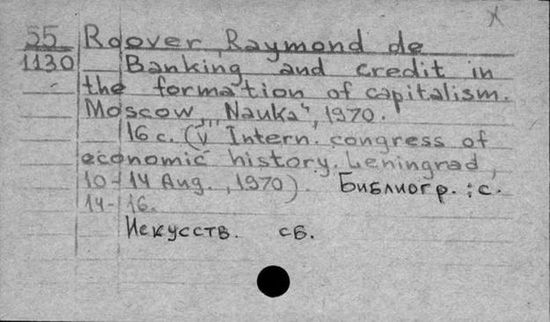 55 Roover, Raymond de
1130 Banking and credit in
the formation of capitalism.
Moscow, „Nauka", 1970.
16 с. (V Intern. congress of
economic history. Leningrad,
10-14 Aug., 1970). Библиогр.: с.
14-16.
Искусств. сб.